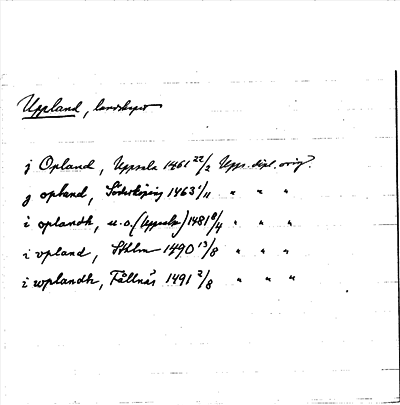 Uppland, landskapet
j Opland, Uppsala 1461 22/2 Upps. dipl. orig.
y opland, Söderköping 1463 1/11 " " "
i oplandh, u.o. (Uppsala) 1481 8/4 " " "
i vpland, Sthlm 1490 13/8 " " "
i wplandh, Fållnäs 1491 2/8 " " "